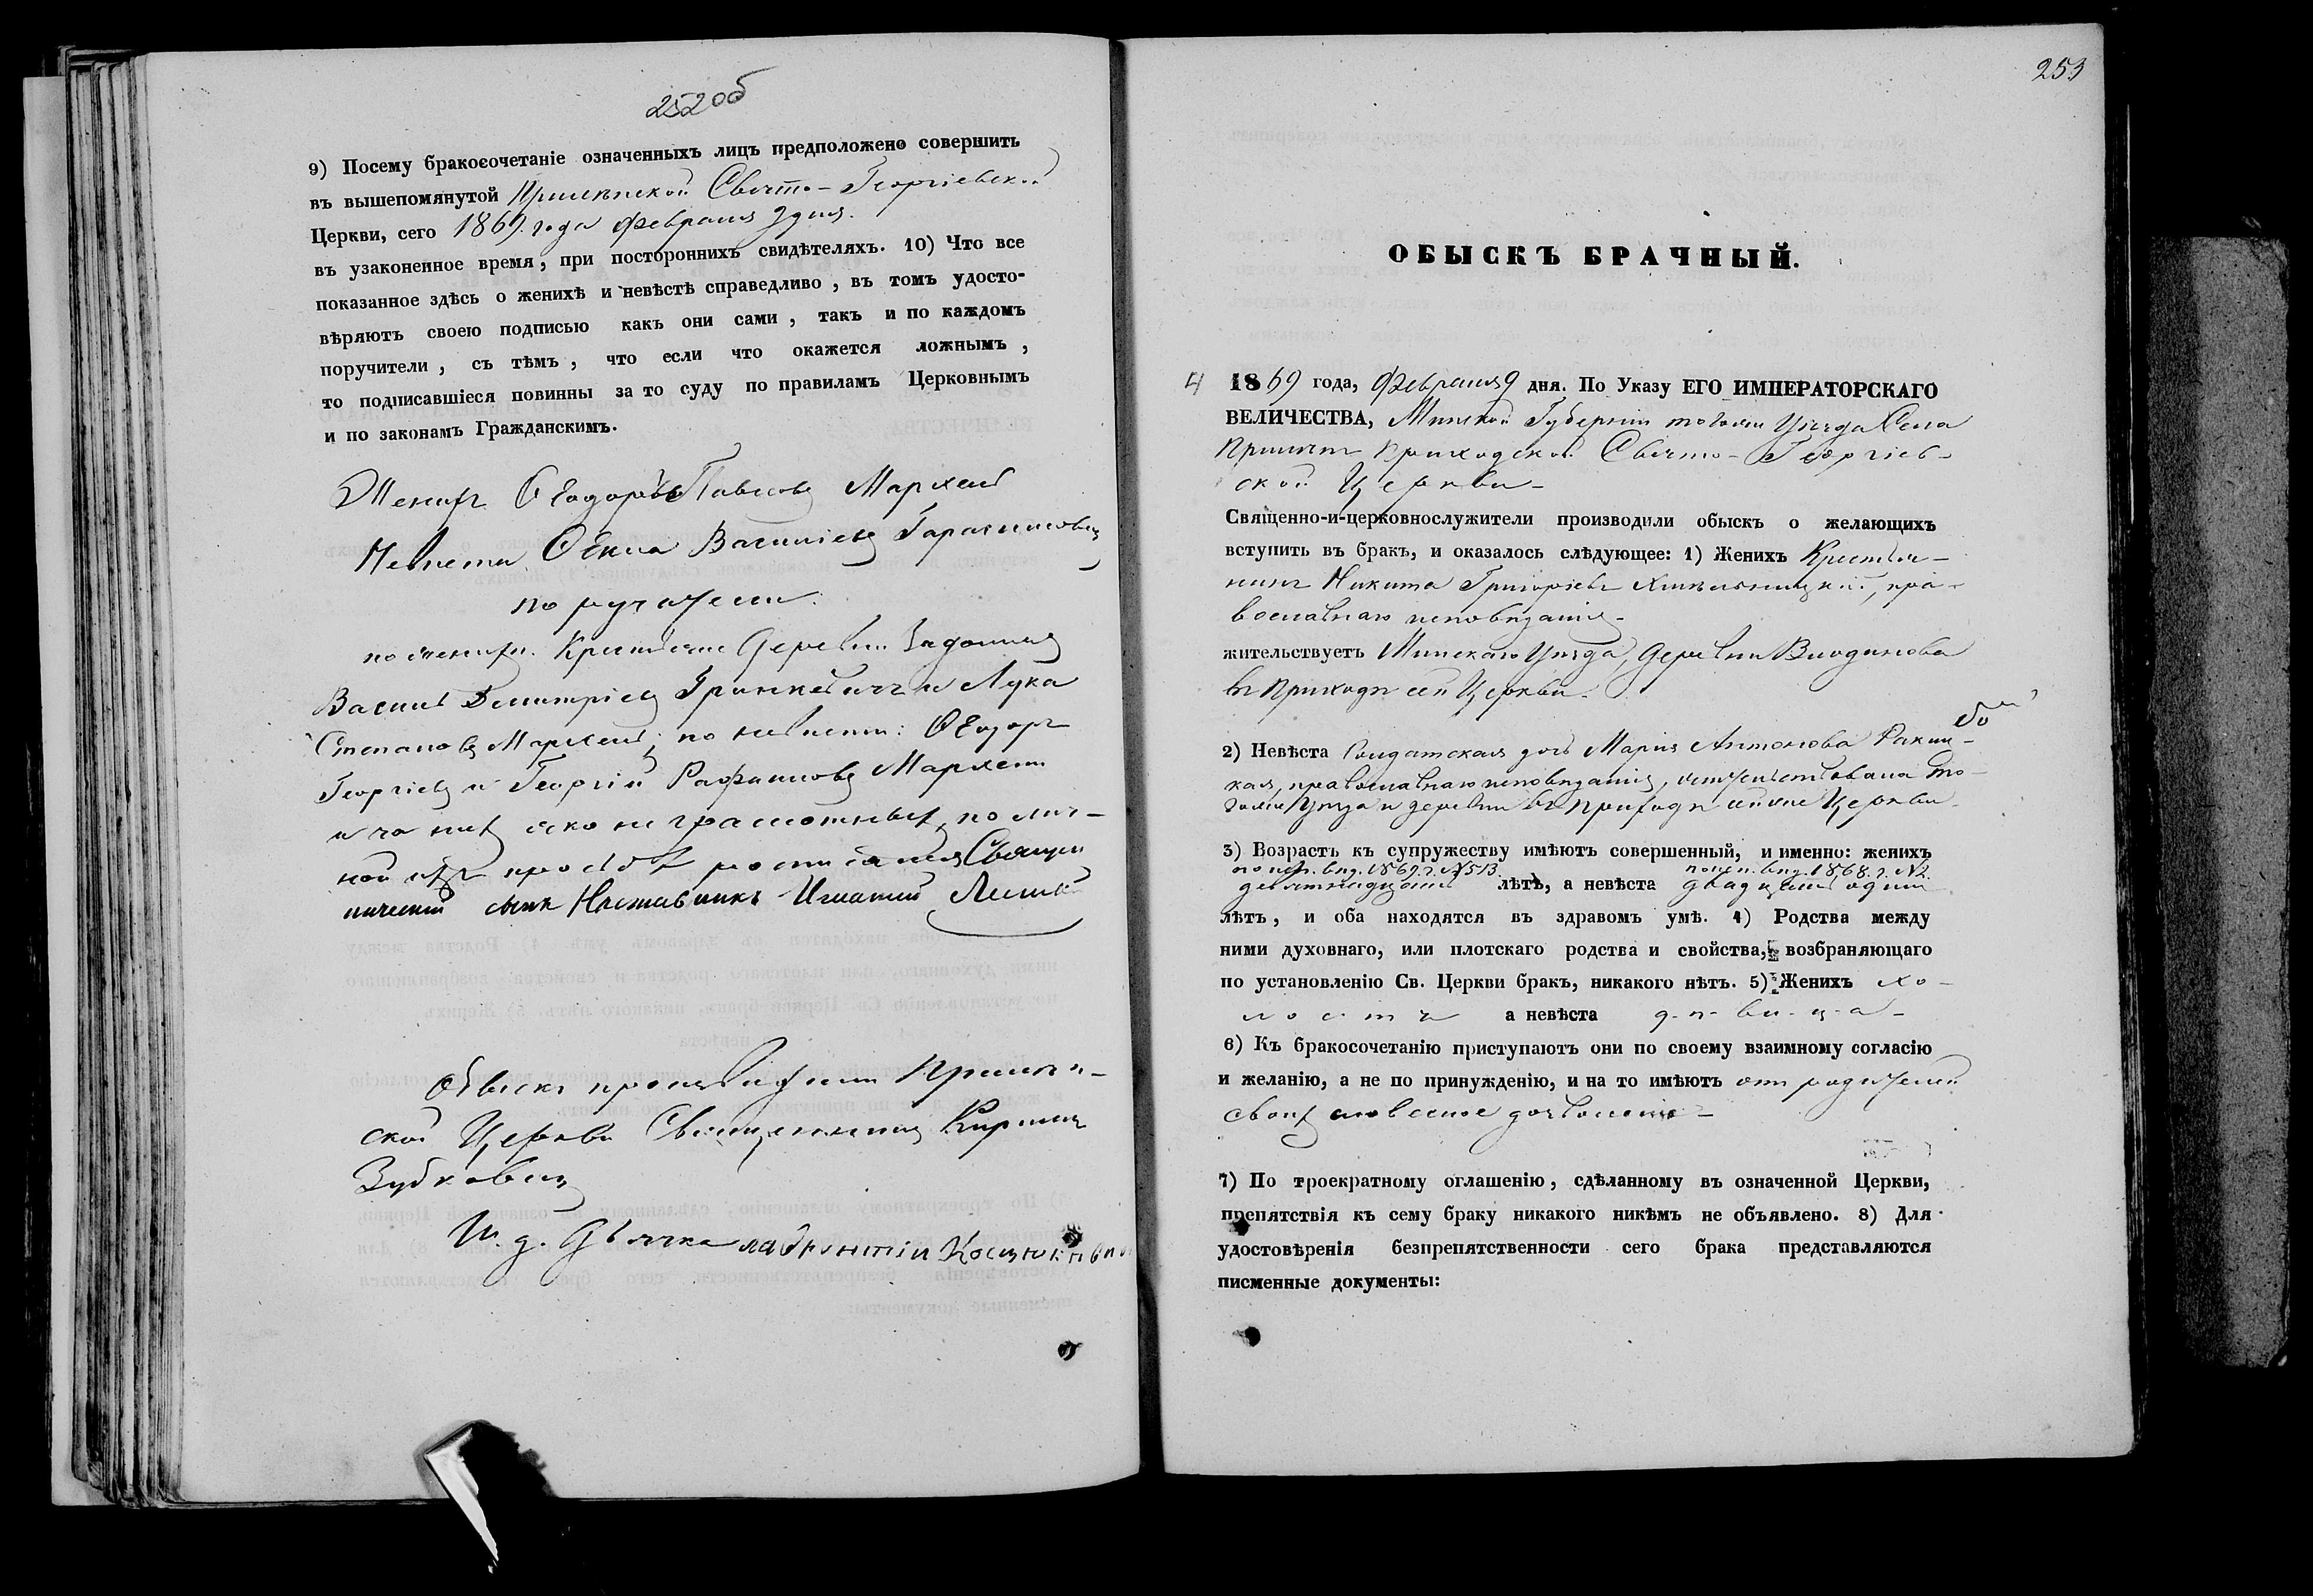 252об
9) Посему бракосочетаніе означенныхъ лицъ предположено совершить
въ вышепомянутой Прилѣпской Свято-Георгіевской
Церкви, сего 1869. года февраля 9 дня.
въ узаконенное время, при постороннихъ свидѣтеляхъ. 10) Что все
показанное здѣсь о женихѣ и невѣстѣ справедливо, въ томъ удосто-
вѣряютъ своею подписью какъ они сами, такъ и по каждомъ
поручители, съ тѣмъ, что если что окажется ложнымъ,
то подписавшіеся повинны за то суду по правиламъ Церковнымъ
и по законамъ Гражданскимъ.
Женихъ Ѳеодоръ Павловъ Мархель
Невѣста Ѳекла Васильева
поручители:
по женихѣ: Крестьяне Деревни
Василь Димитріевъ Гринкевичъ и Лука
Степановъ Мархель; по невѣстѣ: Ѳеодоръ
Георгіевъ и Георгій Мархели
а за нихъ яко неграмотныхъ, по лич-
ной ихъ просьбѣ росписался Священ
ническій сынъ Наставникъ Игнатій
Обыскъ производили Прилѣп-
ской Церкви Священникъ Кириллъ
Зубковичъ
И. д. Дьячка Лаврентій
253
ОБЫСКЪ БРАЧНЫЙ.
4 1869 года, февраля 9 дня. По Указу ЕГО ИМПЕРАТОРСКАГО
ВЕЛИЧЕСТВА, Минской Губерніи тогоже Уѣзда Села
Прилѣпъ Приходской Свято-Георгіев-
ской Церкви-
Священно-и-церковнослужители производили обыскъ о желающихъ
вступить въ бракъ, и оказалось слѣдующее: 1) Женихъ Крестья-
нинъ Никита Григорьевъ Хмѣльницкій, пра-
вославнаго исповѣданія-
жительствуетъ Минскаго Уѣзда, деревни
въ приходѣ сей Церкви.
2) Невѣста Солдатская дочь Марія Антонова
кая, православнаго исповѣданія, жительствовала то-
гоже Уѣзда и деревни въ приходѣ сейже Церкви.
3) Возрастъ къ супружеству имѣютъ совершенный, и именно: женихъ
по исп. вѣд. 1869. г. № 513. по исп. вѣд. 1868. г. №
девятнадцать лѣтъ, а невѣста двадцать одинъ
лѣтъ, и оба находятся въ здравомъ умѣ. 4) Родства между
ними духовнаго, или плотскаго родства и свойства, возбраняющаго
по установленію Св. Церкви бракъ, никакого нѣтъ. 5) Женихъ хо-
лостъ а невѣста д-ѣ-ви-ц-а-
6) Къ бракосочетанію приступаютъ они по своему взаимному согласію
и желанію, а не по принужденію, и на то имѣютъ отъ родителей
своихъ словесное дозволеніе-
7) По троекратному оглашенію, сдѣланному въ означенной Церкви,
препятствія къ сему браку никакого никѣмъ не объявлено. 8) Для
удостовѣренія безпрепятственности сего брака представляются
писменные документы: